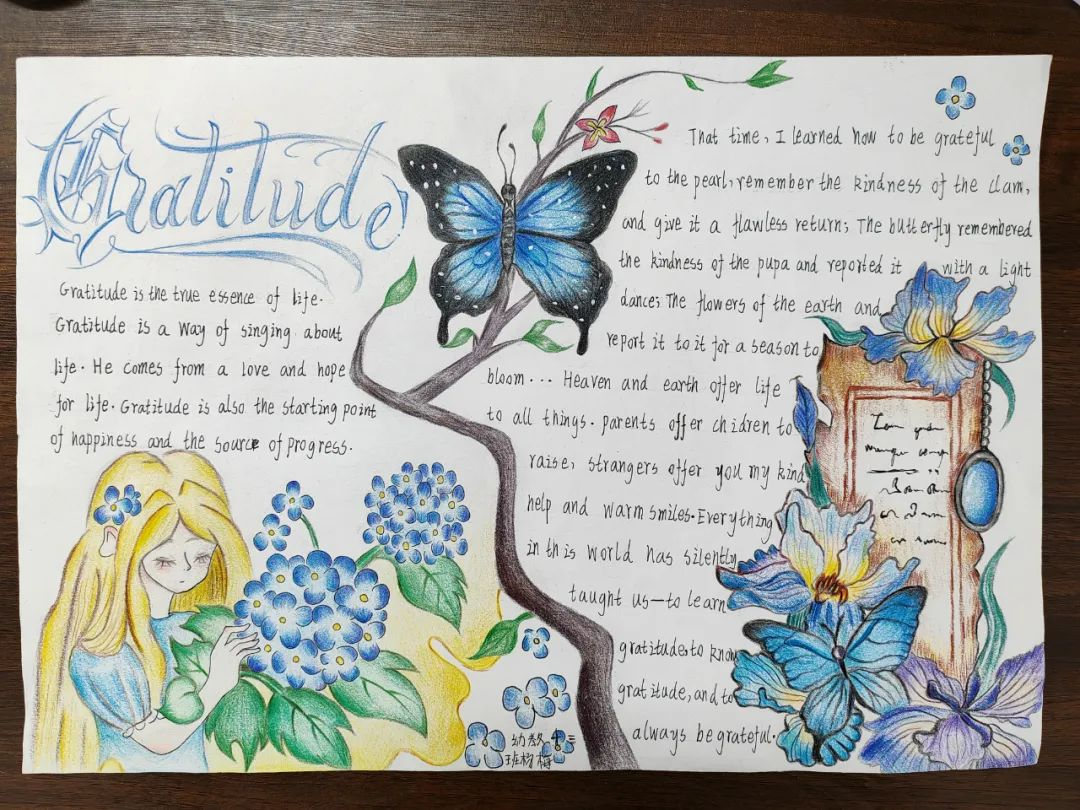 Gratitude
Gratitude is the true essence of life.
Gratitude is a way of singing about
life. He comes from a love and hope
for life. Gratitude is also the starting point
of happiness and the source of progress.
That time, I learned how to be grateful
to the pearl, remember the kindness of the clam,
and give it a flawless return; The butterfly remembered
the kindness of the pupa and reported it with a light
dance; The flowers of the earth and
report it to it for a season to
bloom... Heaven and earth offer life
to all things. parents offer children to
raise, strangers offer you my kind
help and warm smiles. Everything
in this world has silently
taught us—to learn
gratitude, to know
gratitude, and to
always be grateful.
幼教
班杨梅